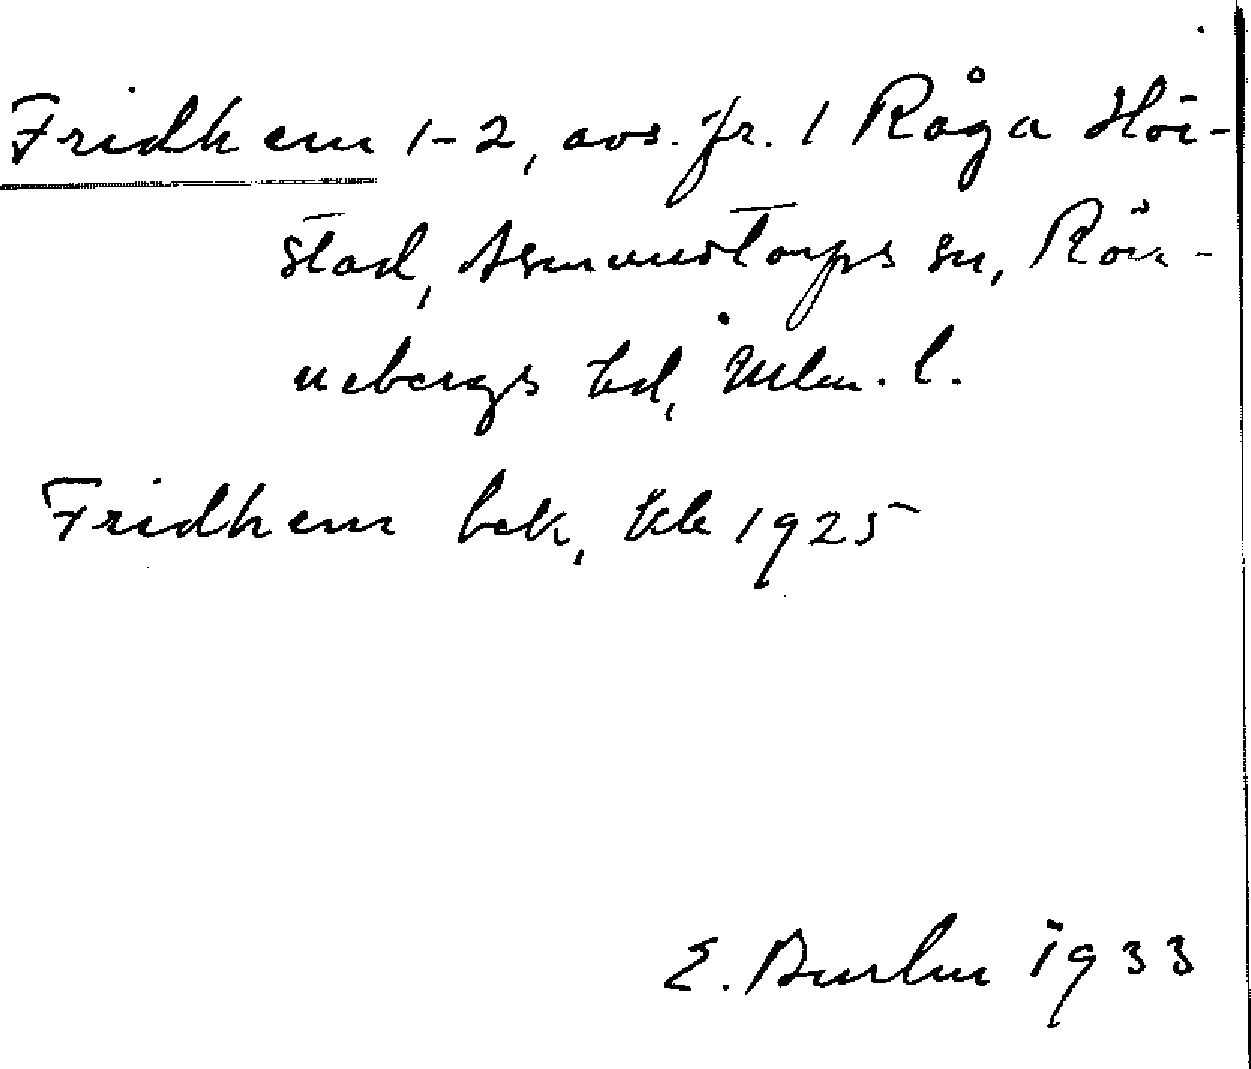 Fridhem 1-2, avs. fr. 1 Råga Hör-
stad, Asmundtorps sn, Rön-
nebergs hd, Mlm. l.
Fridhem bek, kb 1925
E. 1933